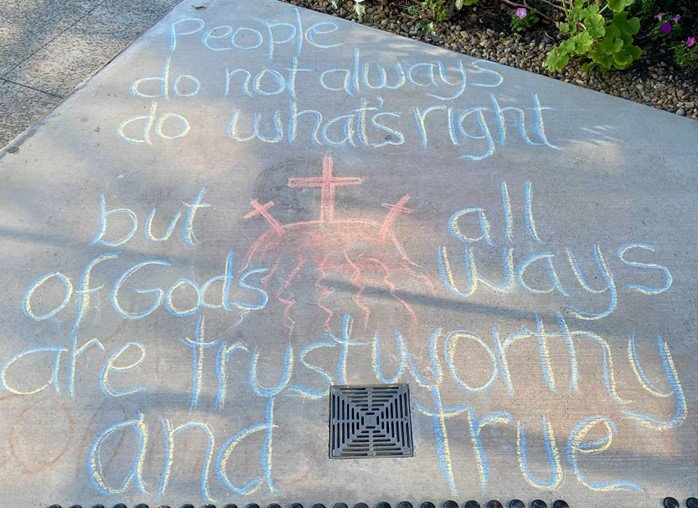 People
do not always
do what's right
but all
of Gods ways
are trustworthy
and true